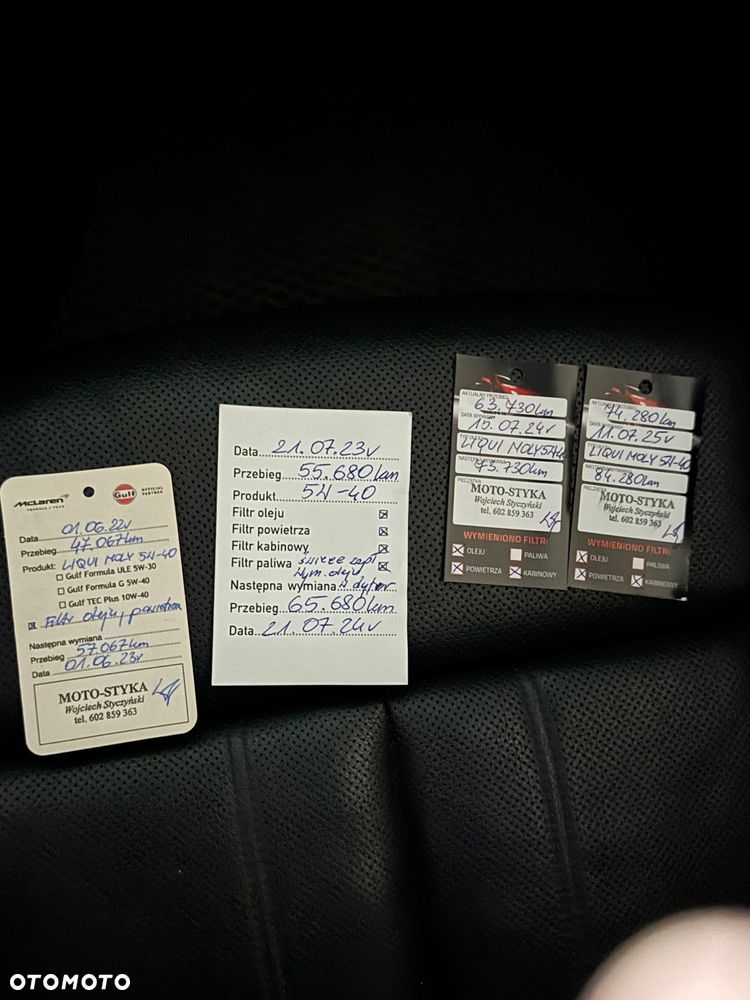 McLaren
FORMULA 1 TEAM
Gulf
OFFICIAL
PARTNER
Data 01.06.22r
Przebieg 47.067km
Produkt: LIQUI MOLY 5W-40
Gulf Formula ULE 5W-30
Gulf Formula G 5W-40
Gulf TEC Plus 10W-40
Filtr oleju, powietrza
Następna wymiana
Przebieg 57.067km
Data 01.06.23r
MOTO-STYKA
Wojciech Styczyński
tel. 602 859 363
Data 21.07.23r
Przebieg 55.680km
Produkt 5W-40
Filtr oleju
Filtr powietrza
Filtr kabinowy
Filtr paliwa świece zapł
wym. oleju
Następna wymiana
Przebieg 65.680km
Data 21.07.24r
AKTUALNY PRZEBIEG
63.730km
DATA WYMIANY
15.07.24r
LIQUI MOLY 5W-40
73.730km
PIECZĄTKA
MOTO-STYKA
Wojciech Styczyński
tel. 602 859 363
WYMIENIONO FILTR:
OLEJU PALIWA
POWIETRZA KABINOWY
74.280km
11.07.25r
LIQUI MOLY 5W-40
84.280km
PIECZĄTKA
MOTO-STYKA
Wojciech Styczyński
tel. 602 859 363
WYMIENIONO FILTR:
OLEJU PALIWA
POWIETRZA KABINOWY
OTOMOTO